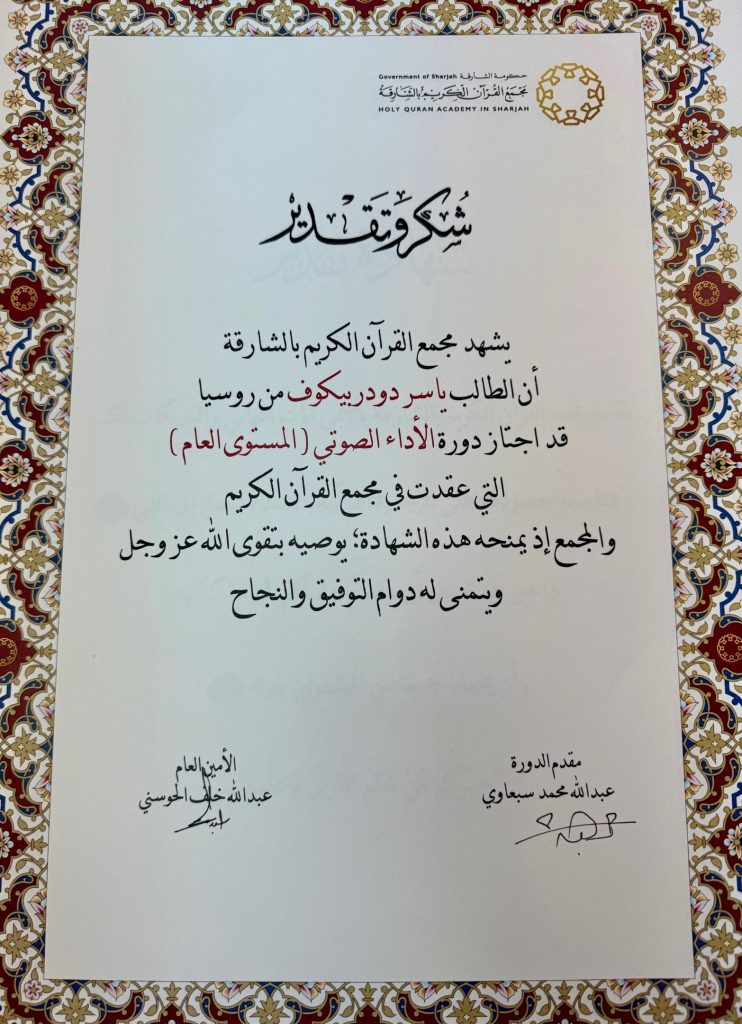 Government of Sharjah حكومة الشارقة
مجمع القرآن الكريم بالشارقة
HOLY QURAN ACADEMY IN SHARJAH
شُكر وَتَقْدير
يشهد مجمع القرآن الكريم بالشارقة
أن الطالب ياسر دودربيكوف من روسيا
قد اجتاز دورة الأداء الصوتي ( المستوى العام )
التي عقدت في مجمع القرآن الكريم
والمجمع إذ يمنحه هذه الشهادة؛ يوصيه بتقوى الله عز وجل
ويتمنى له دوام التوفيق والنجاح
مقدم الدورة
عبدالله محمد سبعاوي
الأمين العام
عبدالله خلف الحوسني